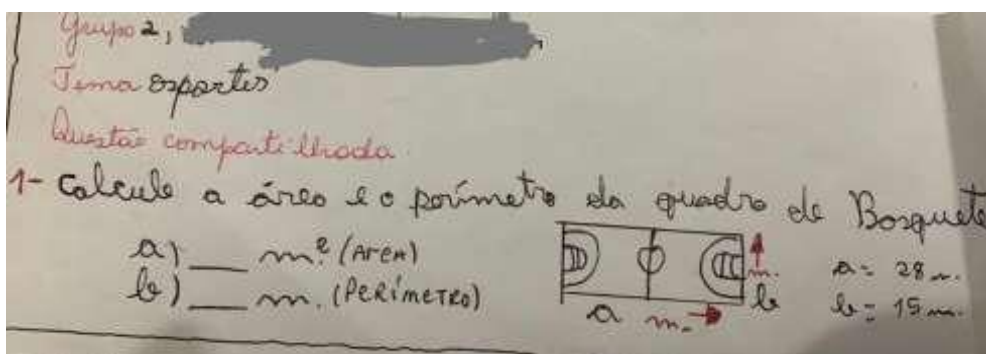 Grupo 2,
Tema esportes
Questão compartilhada.
1- Calcule a área e o perímetro da quadra de Basquete
a) ___ m² (Area)
b) ___ m. (Perímetro)
a m.
m.
b
a = 28 m.
b = 15 m.